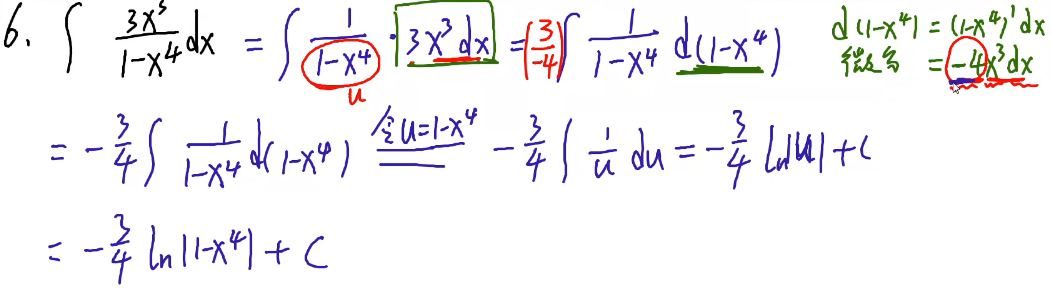 6. ∫ 3x³/(1-x⁴) dx = ∫ 1/(1-x⁴) · 3x³dx = (3/-4) ∫ 1/(1-x⁴) d(1-x⁴)
u
d(1-x⁴) = (1-x⁴)'dx
微分 = -4x³dx
= -3/4 ∫ 1/(1-x⁴) d(1-x⁴) 令u=1-x⁴ = -3/4 ∫ 1/u du = -3/4 ln|u| + C
= -3/4 ln|1-x⁴| + C